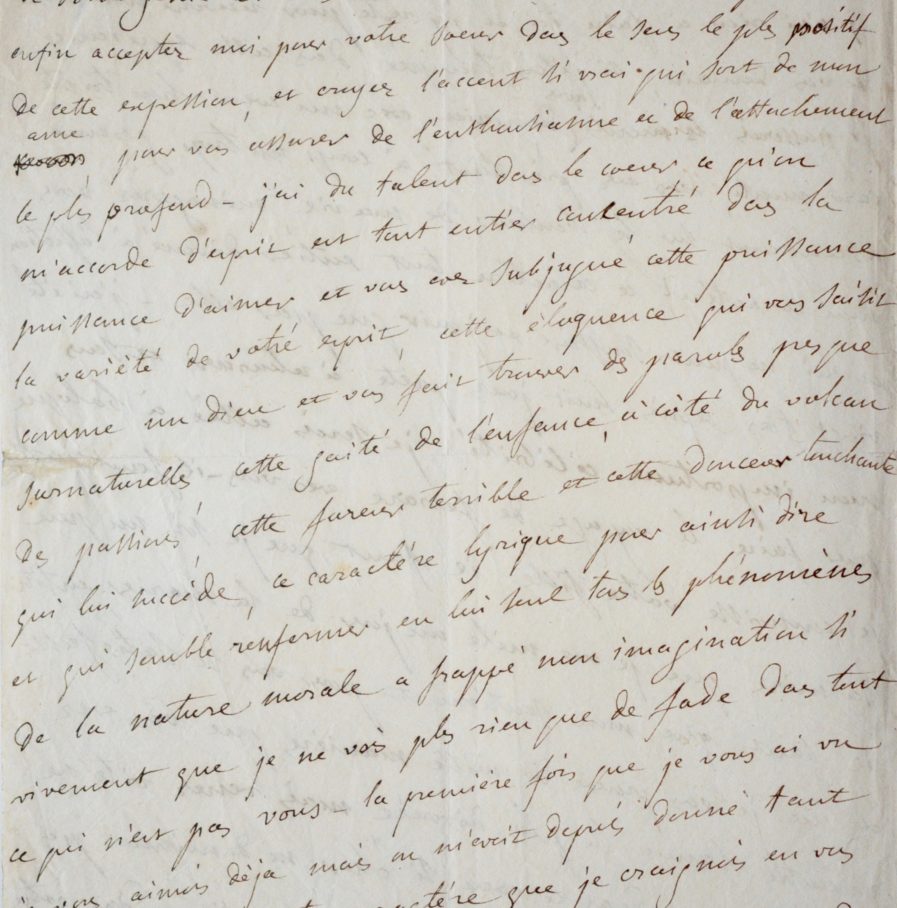 enfin acceptez moi pour votre soeur dans le sens le plus positif
de cette expression, et croyez l'accent si vrai qui sort de mon
ame
pour vous assurer de l'enthousiasme et de l'attachement
le plus profond - j'ai du talent dans le coeur ce qu'on
m'accorde d'esprit est tout entier concentré dans la
puissance d'aimer et vous avez subjugué cette puissance
la variété de votre esprit, cette éloquence qui vous saisit
comme un dieu et vous fait trouver des paroles presque
surnaturelles cette gaité de l'enfance, à côté du volcan
des passions, cette fureur terrible et cette douceur touchante
qui lui succède, ce caractère lyrique pour ainsi dire
et qui semble renfermer en lui seul tous les phénomènes
de la nature morale a frappé mon imagination si
vivement que je ne vois plus rien que de fade dans tout
ce qui n'est pas vous - la première fois que je vous ai vu
aimois déja mais on m'avoit depuis donné tant
que je craignois en vous